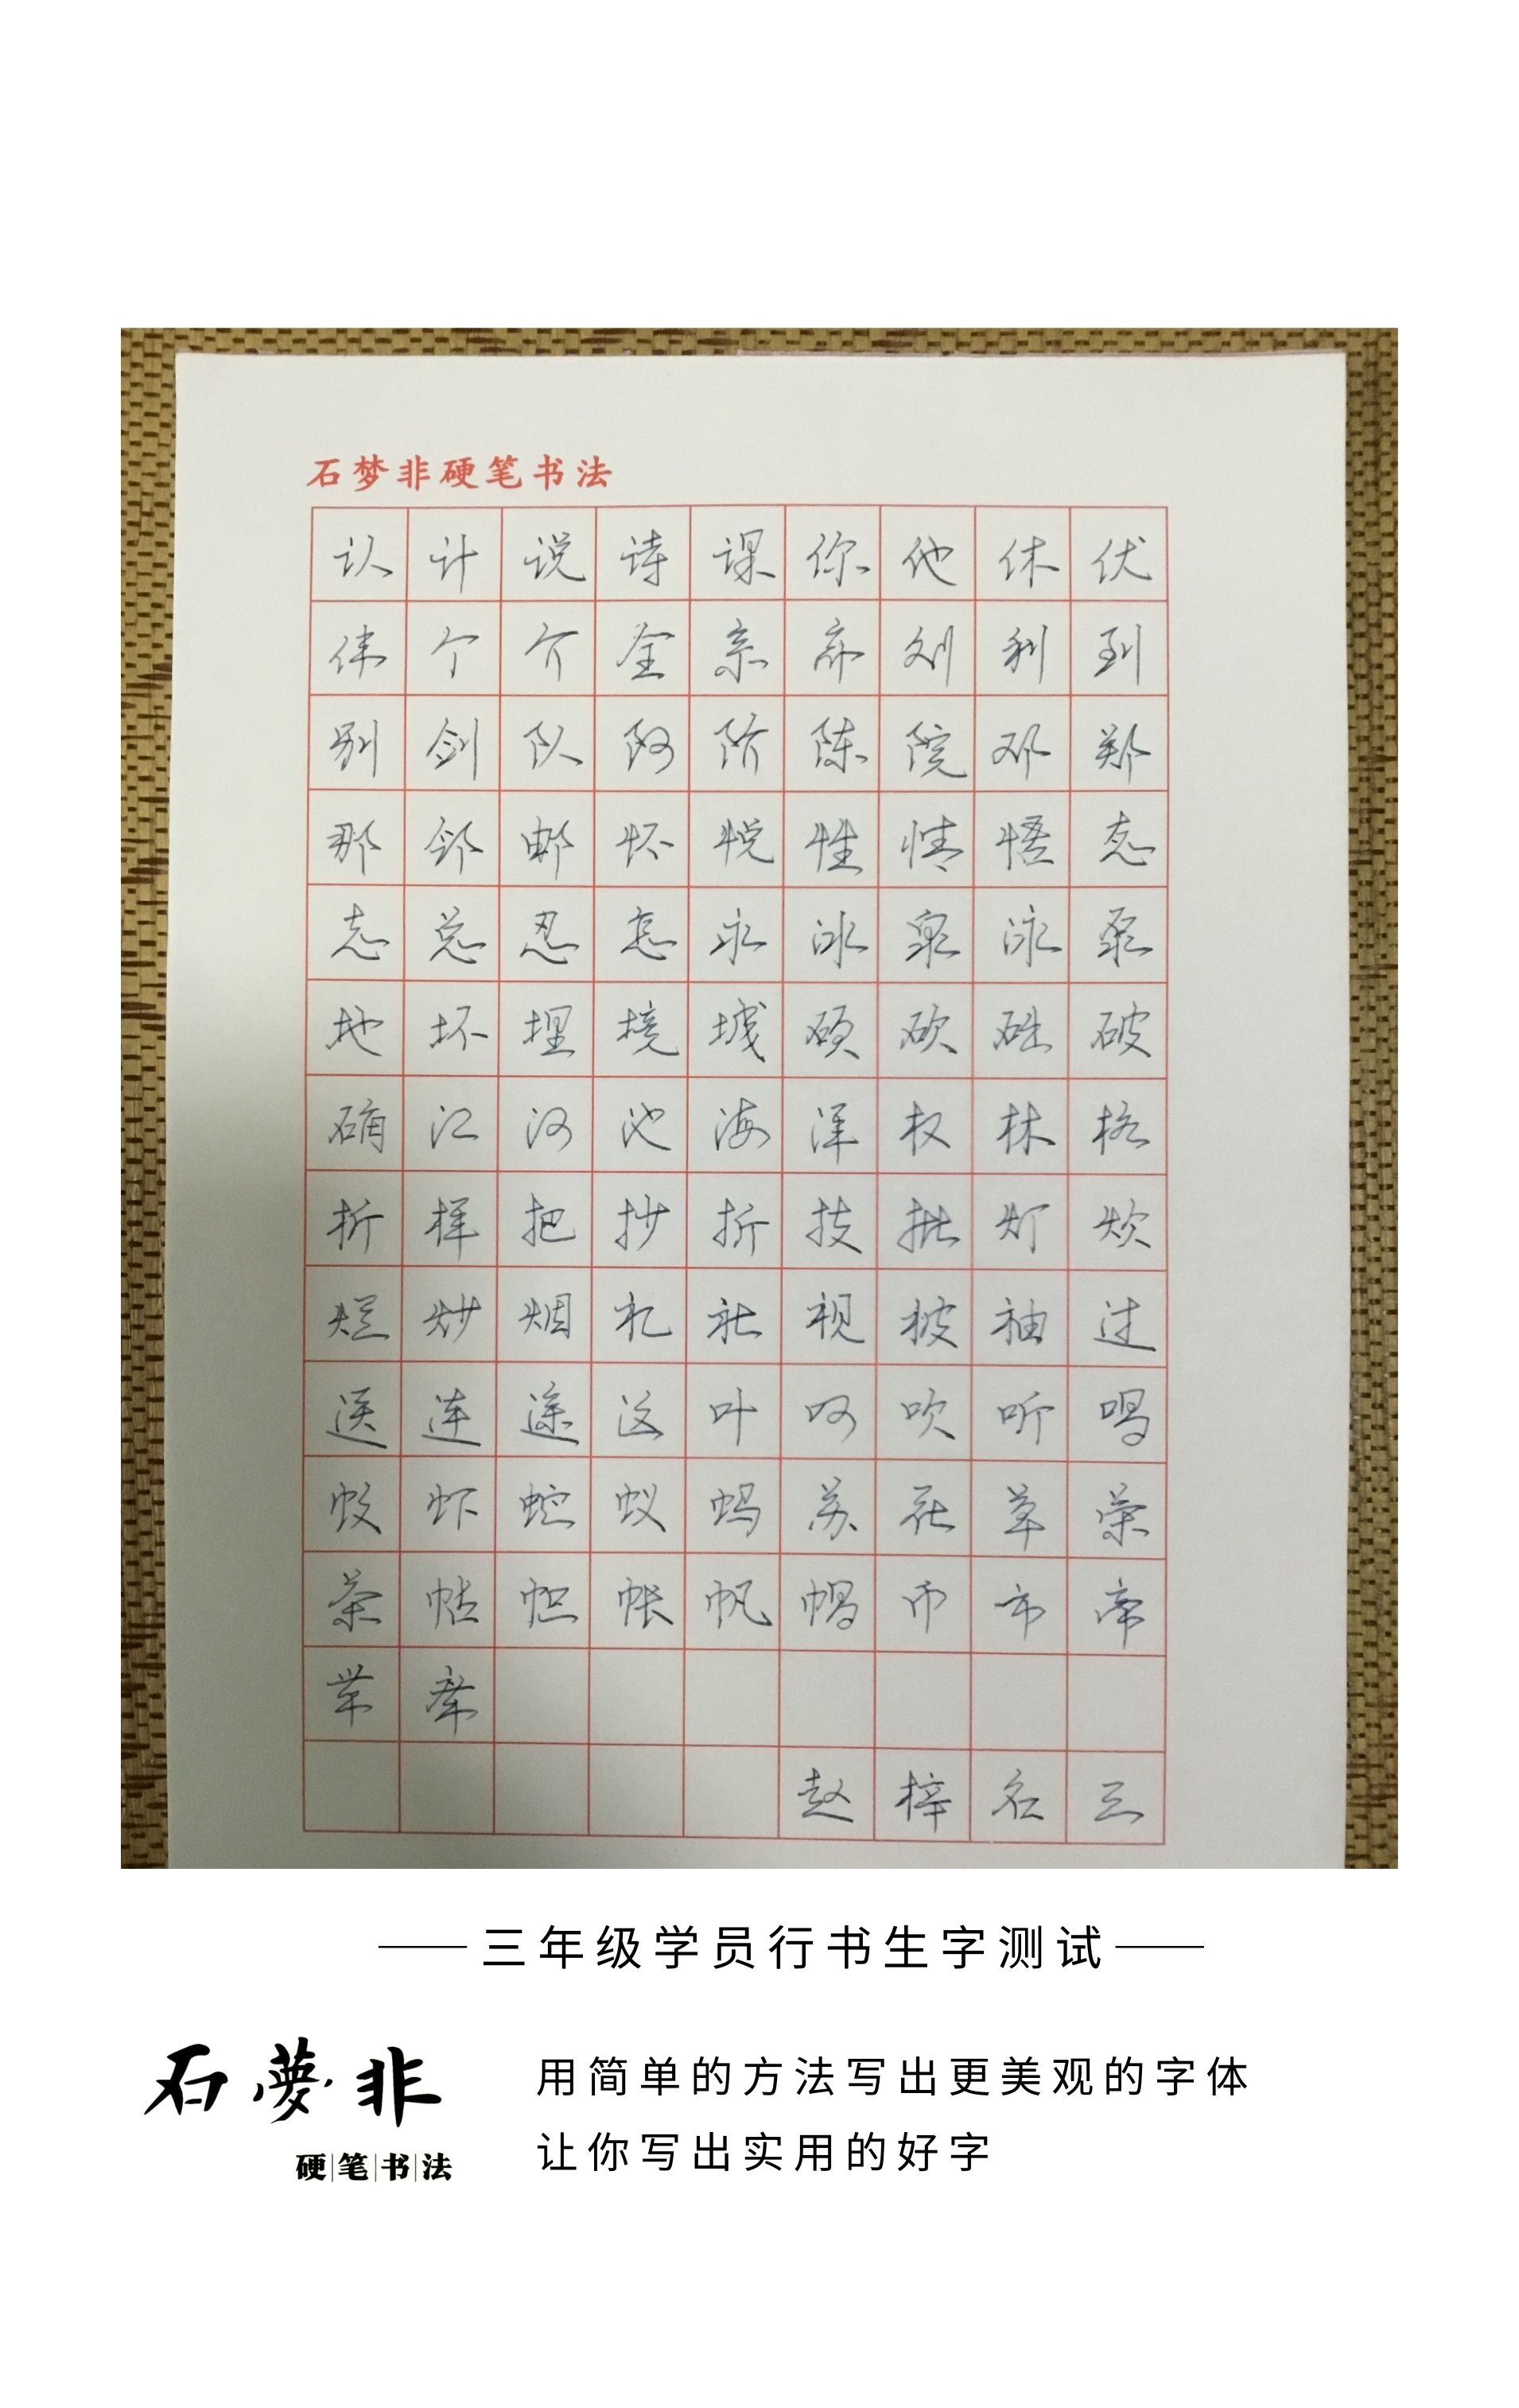 石梦非硬笔书法
认计说诗课你他休伏
伟个介全亲亦刘利到
别剑队阿阶陈院邓郑
那邻邮怀悦性情悟态
志总忍怎永冰泉泳
地坏埋境城硕砍础破
确江河池海洋权林格
折样把抄折技批灯炊
烂炒烟礼社视被袖过
送连途这叶呵吹听唱
蚊虾蛇蚁蚂苏花草荣
茶帖帐帆帽币市帝
赵梓名三
三年级学员行书生字测试
石夢非
硬笔书法
用简单的方法写出更美观的字体
让你写出实用的好字